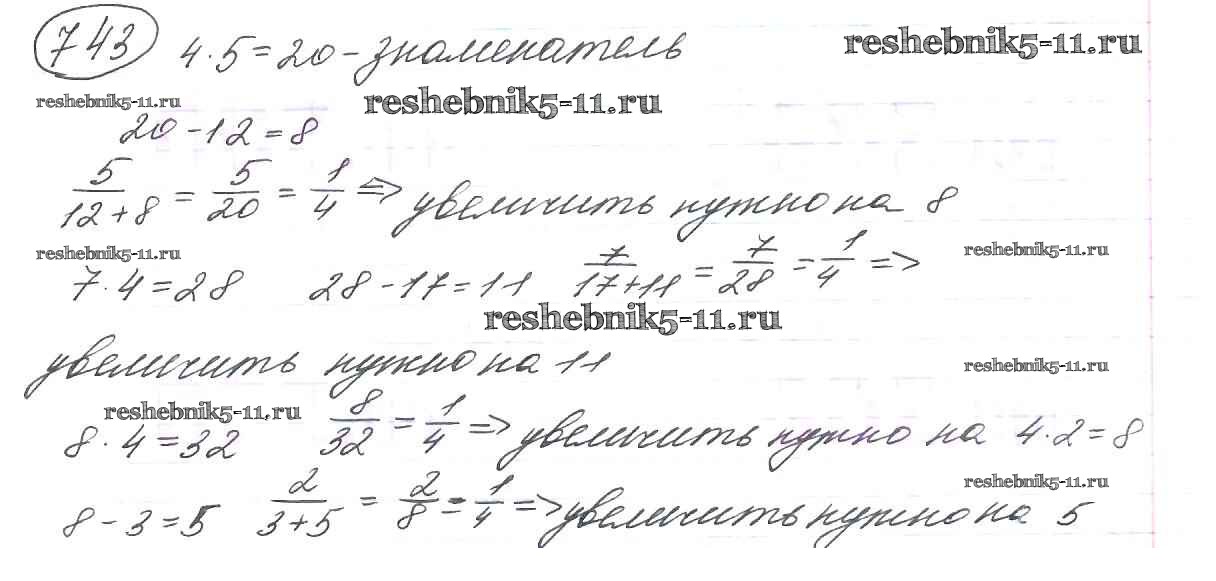 743 4·5=20 - знаменатель reshebnik5-11.ru
reshebnik5-11.ru reshebnik5-11.ru
20-12=8
5/(12+8) = 5/20 = 1/4 => увеличить нужно на 8
reshebnik5-11.ru reshebnik5-11.ru
7·4=28 28-17=11 7/(17+11) = 7/28 = 1/4 =>
reshebnik5-11.ru
увеличить нужно на 11 reshebnik5-11.ru
reshebnik5-11.ru
8·4=32 8/32 = 1/4 => увеличить нужно на 4·2=8
reshebnik5-11.ru
8-3=5 2/(3+5) = 2/8 = 1/4 => увеличить нужно на 5